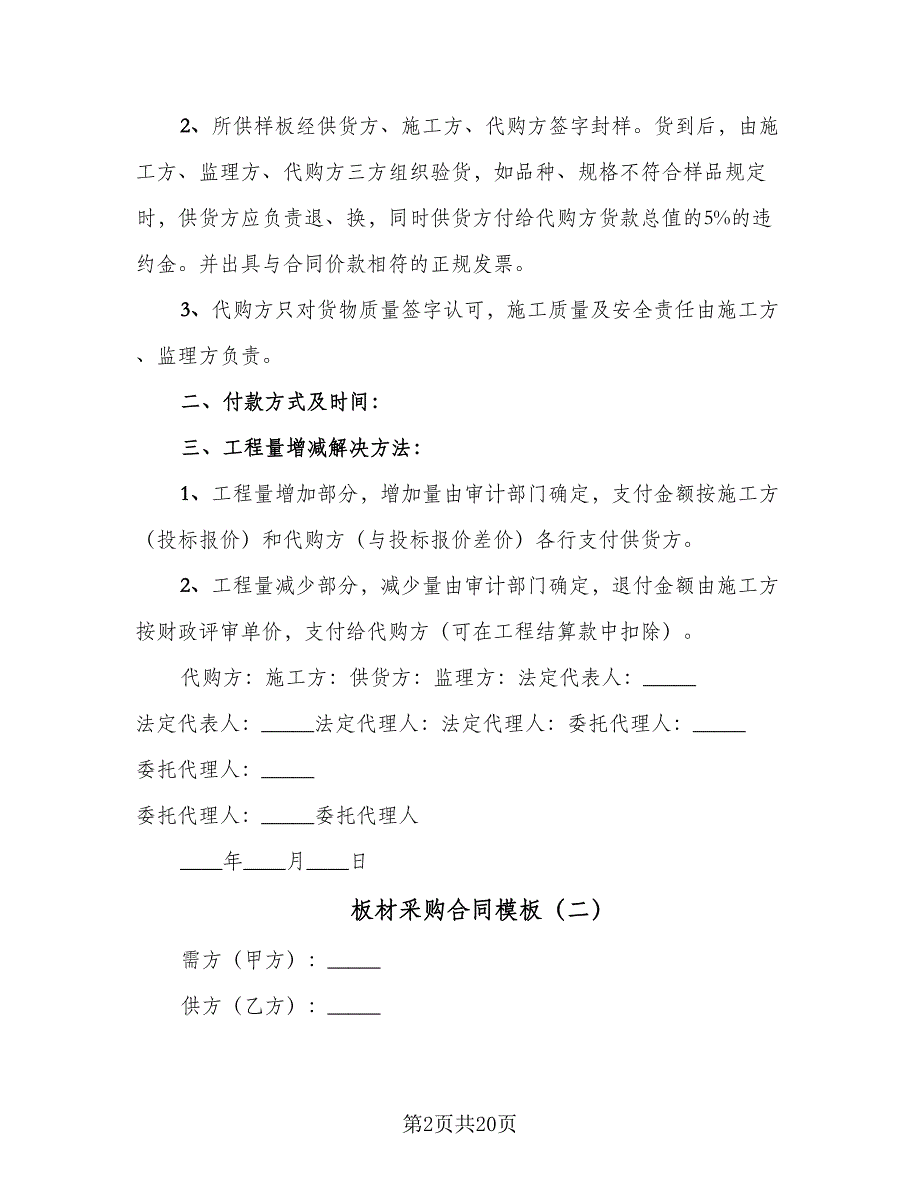 2、所供样板经供货方、施工方、代购方签字封样。货到后，由施
工方、监理方、代购方三方组织验货，如品种、规格不符合样品规定
时，供货方应负责退、换，同时供货方付给代购方货款总值的5%的违
约金。并出具与合同价款相符的正规发票。
3、代购方只对货物质量签字认可，施工质量及安全责任由施工方
、监理方负责。
二、付款方式及时间：
三、工程量增减解决方法：
1、工程量增加部分，增加量由审计部门确定，支付金额按施工方
（投标报价）和代购方（与投标报价差价）各行支付供货方。
2、工程量减少部分，减少量由审计部门确定，退付金额由施工方
按财政评审单价，支付给代购方（可在工程结算款中扣除）。
代购方：施工方：供货方：监理方：法定代表人：_____
法定代表人：_____法定代理人：法定代理人：委托代理人：_____
委托代理人：_____
委托代理人：_____委托代理人
____年____月____日
板材采购合同模板（二）
需方（甲方）：_____
供方（乙方）：_____
第2页共20页